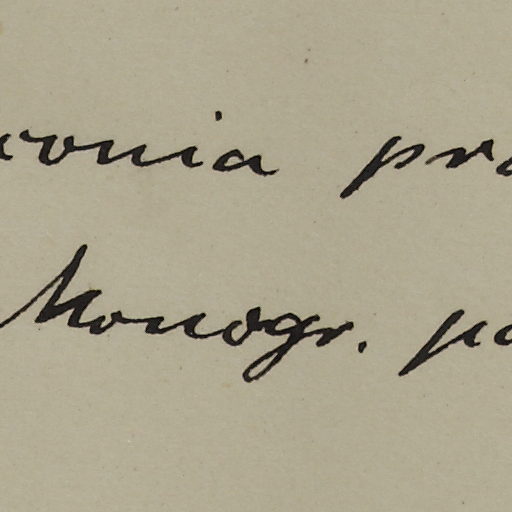 conia pro
Monogr. pa